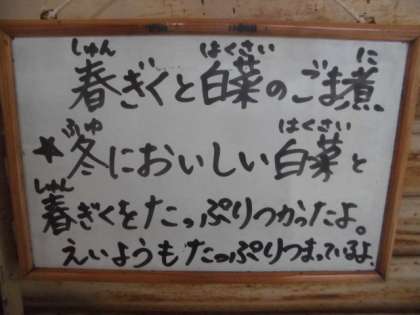 しゅん はくさい に
春ぎくと白菜のごま煮
ふゆ はくさい
★冬においしい白菜と
しゅん
春ぎくをたっぷりつかったよ。
えいようもたっぷりつまっているよ。